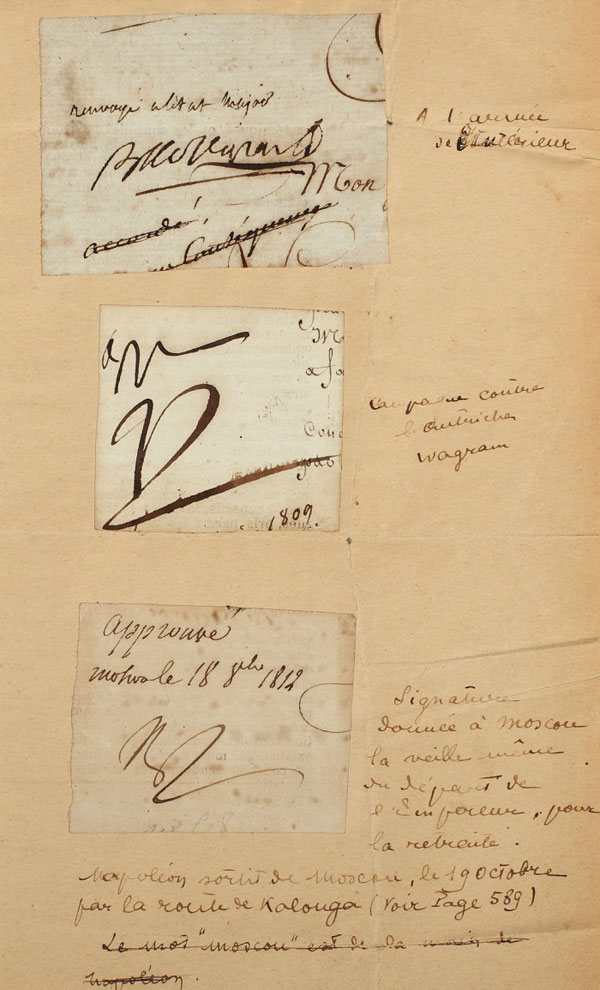 renvoyé a l'etat Major
A l'armée
de l'Intérieur
Buonaparte
Mon
accordé,
Conséquence
a
N
1809.
Campagne contre
l'Autriche
Wagram
approuvé
18 8bre 1812
N
Signature
donnée à Moscou
la veille même
du départ de
l'Empereur, pour
la retraite.
Napoléon sortit de Moscou, le 19 Octobre
par la route de Kalouga (Voir Page 589)
Le mot "Moscou" est de la main de
Napoléon.